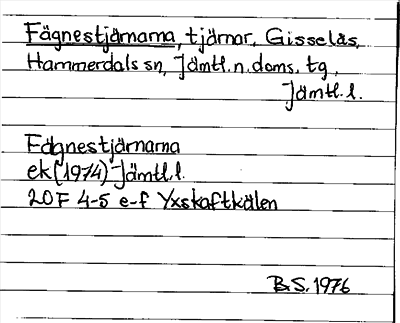 Fägnestjärnarna, tjärnar, Gisselås,
Hammerdals sn, Jämtl. n. doms. tg,
Jämtl. l.
Fägnestjärnarna
ek (1974) Jämtl. l.
20F 4-5 e-f Yxskaftkälen
B.S. 1976